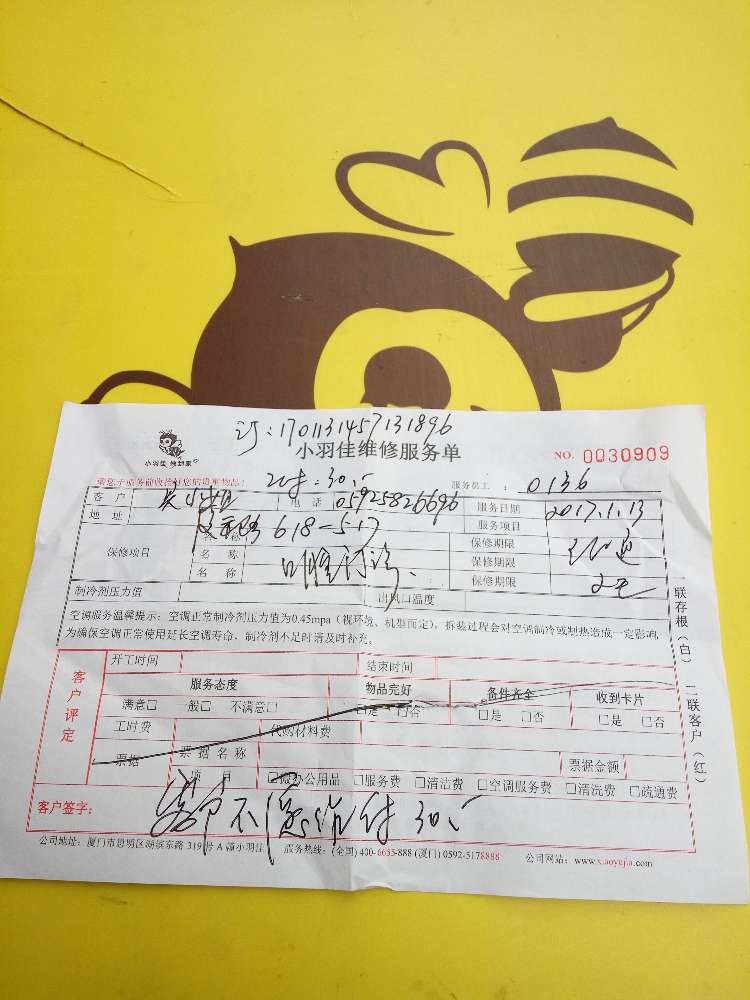 订:1701131457131896
小羽佳维修服务单
小羽佳 维部家
NO. 0030909
请您于服务前收拾好您的贵重物品!
30
服务员工 : 0136
客 户
电 话 05925826696
服务日期 2017.1.13
地 址 618-517
服务项目
保修项目
名 称
保修期限
名 称
保修期限
名 称
保修期限
制冷剂压力值
出风口温度
空调服务温馨提示:空调正常制冷剂压力值为0.45mpa(视环境、机型而定),拆装过程会对空调制冷或制热造成一定影响
为确保空调正常使用延长空调寿命,制冷剂不足时请及时补充。
客户评定
开工时间
结束时间
服务态度
物品完好
备件齐全
收到卡片
满意□ 般□ 不满意□
□是 □否
□是 □否
□是 □否
工时费
代购材料费
票据
票据名称
票据金额
项 目
□办公用品 □服务费 □清洁费 □空调服务费 □清洗费 □疏通费
客户签字:
付 30
公司地址:厦门市思明区湖滨东路 319 号 A 幢小羽佳 服务热线:(全国) 400-6655-888 (厦门) 0592-5178888 公司网站:www.xiaoyujia.com
一联存根(白) 二联客户(红)